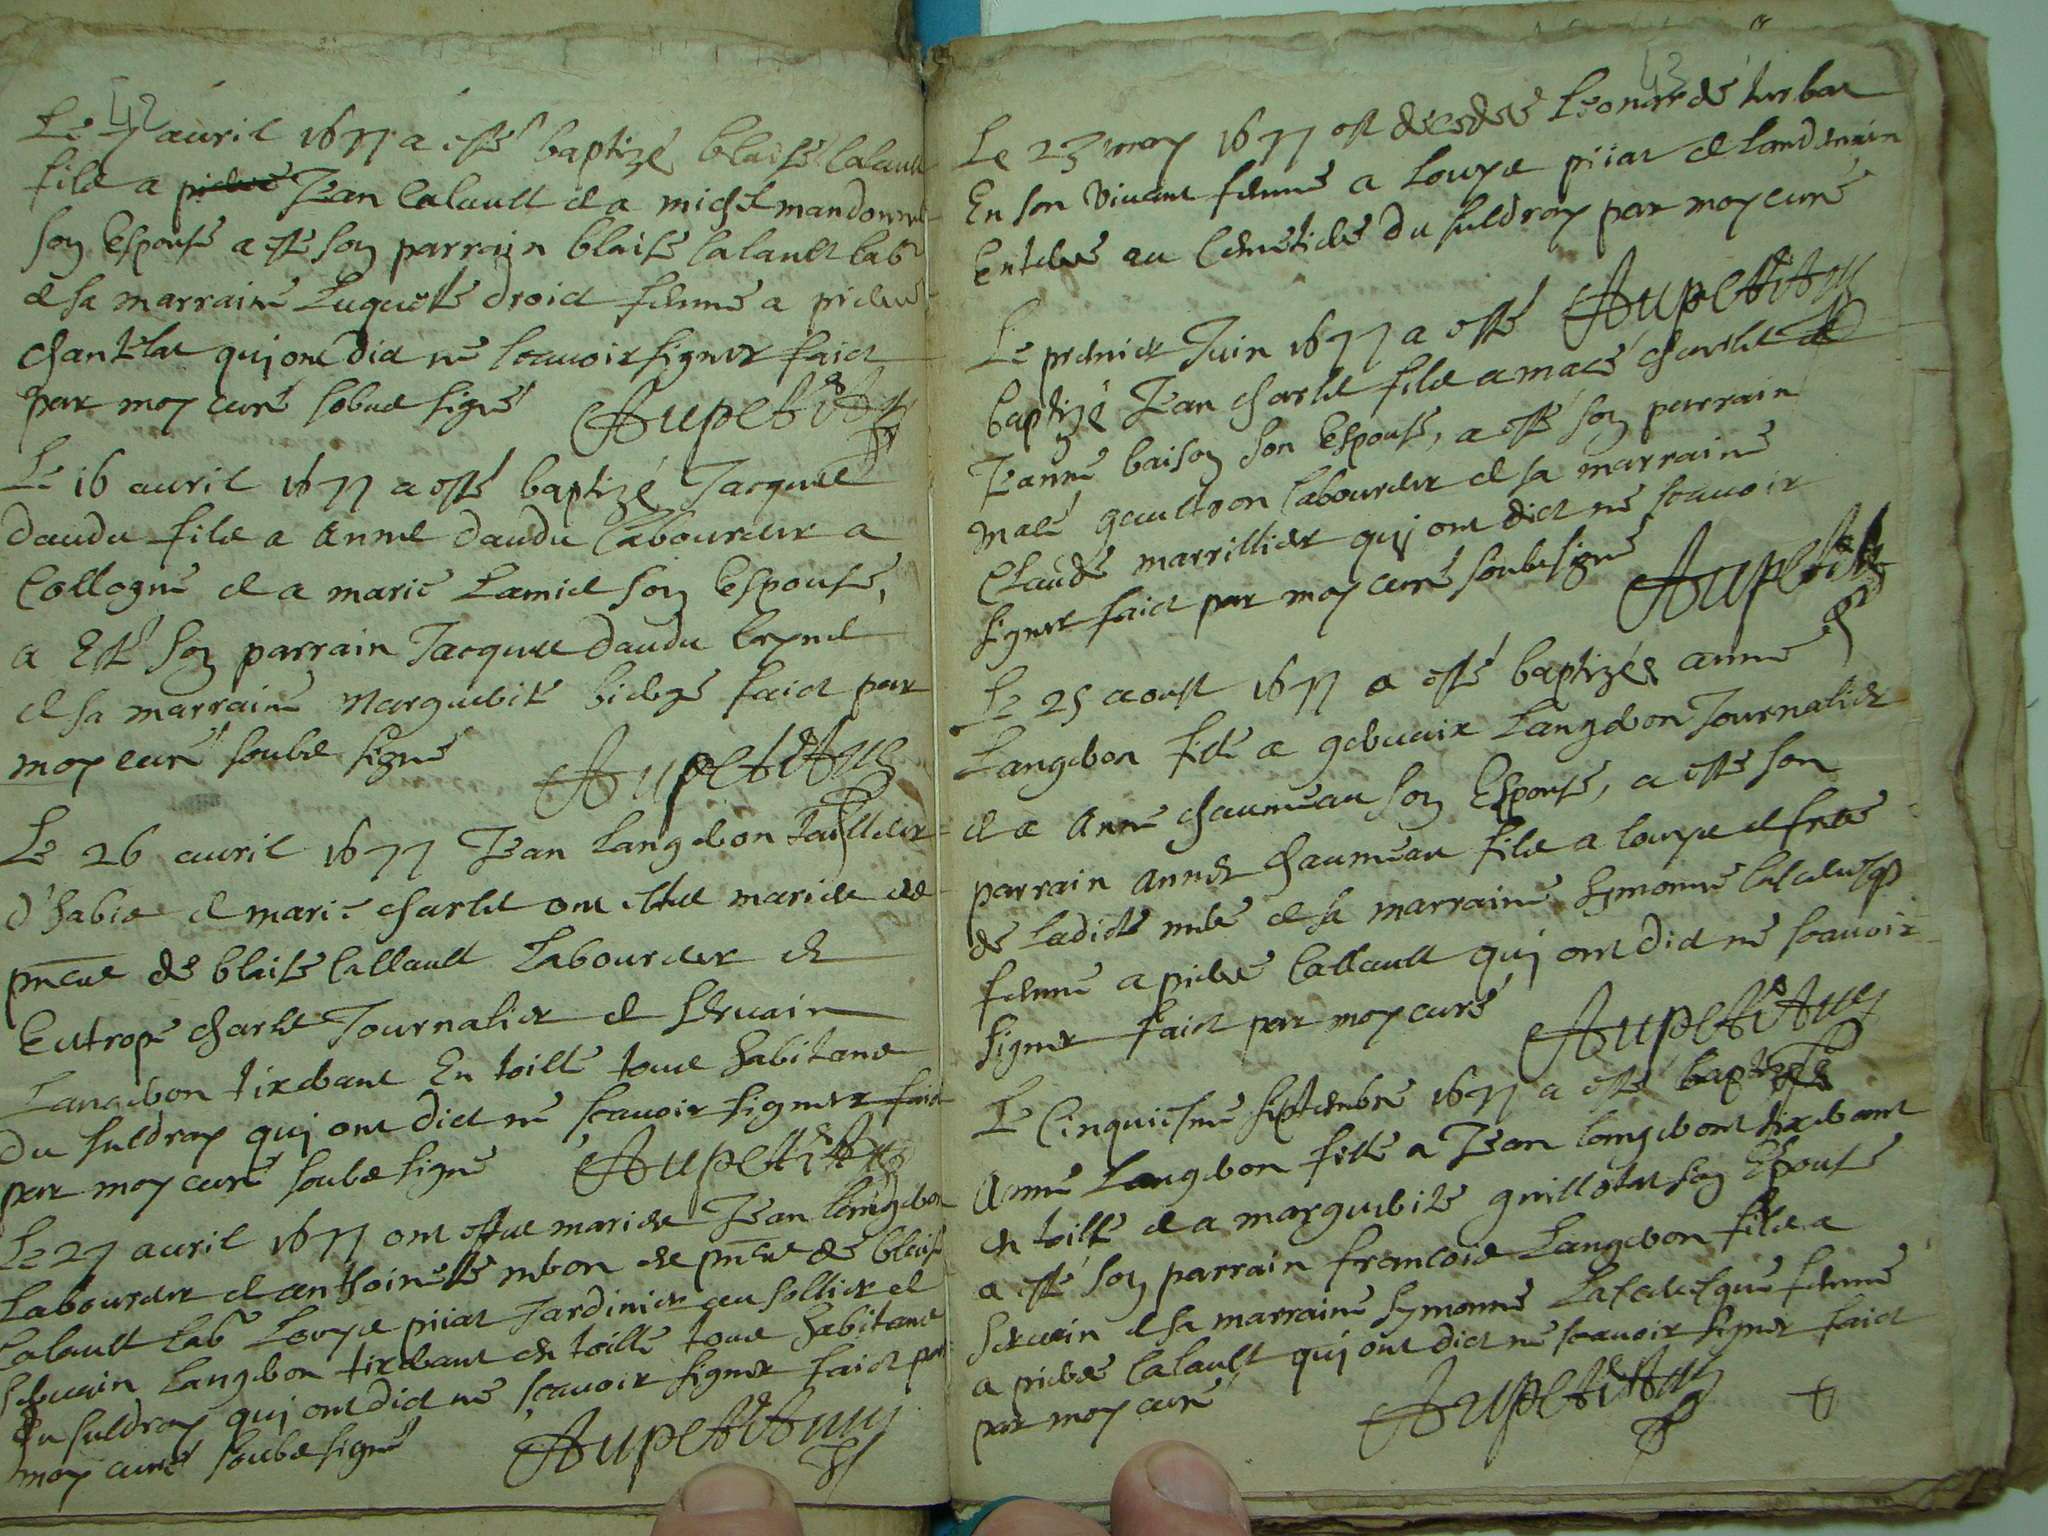 42
Le 7 avril 1677 a esté baptizé blaise Calault
filz a pierre Jean Calault et a michel mandonnet
son Espouse a esté son parrain blaise Calault lab^r
et sa marraine Luquette droict femme a pierre
Chantelat qui ont dict ne scavoir signer faict
par moy curé soubz signé Aupetit
Le 16 avril 1677 a esté baptizé Jacques
daudu filz a Anne daudu laboureur a
Collogne et a marie Lamie son Espouse,
a Esté son parrain Jacques daudu
et sa marraine Marguerite faict par
moy curé soubz signé Aupetit
Le 26 avril 1677 Jean Langeron tailleur
d'habis et marie charle ont estes mariez es
pnce de blaise Callault Laboureur et
Eutrope charle Journalier et Servain
Langeron tixerant En toille tous habitans
du suldray qui ont dict ne scavoir signer faict
par moy curé soubz signé Aupetit
Le 27 avril 1677 ont estes mariez Jean Langeron
Laboureur et anthoinette en pnce de blaise
Calault Lab^r Loupe piiat Jardinier au sollier et
Servain Langeron tixerant en toille tous habitans
du suldray qui ont dict ne scavoir signer faict par
moy curé soubz signé Aupetit
43
Le 23 may 1677 est decedee Leonarde turbat
En son vivant femme a Loupe piiat et
Enterree au Cemetiere du suldray par moy curé
Aupetit
Le premier Juin 1677 a esté
baptizé Jean charle filz a macé charle et
Jeanne baison son Espouse, a esté son parrain
macé gaultron laboureur et sa marraine
Claude marrillier qui ont dict ne scavoir
signer faict par moy curé soubz signé Aupetit
Le 25 aoust 1677 a esté baptizée anne
Langeron fille a gervair Langeron Journalier
et a Anne chaumeau son Espouse, a esté son
parrain Annet chaumeau filz a loupe et frere
de Ladicte mere et sa marraine Symonne
femme a pierre Callault qui ont dict ne scavoir
signer faict par moy curé Aupetit
Le Cinquiesme septembre 1677 a esté baptizée
Anne Langeron fille a Jean Langeron tixerant
en toille et a marguerite guillotat son Espouse
a esté son parrain francois Langeron filz a
Servain et sa marraine Symonne femme
a pierre Calault qui ont dict ne scavoir signer faict
par moy curé Aupetit